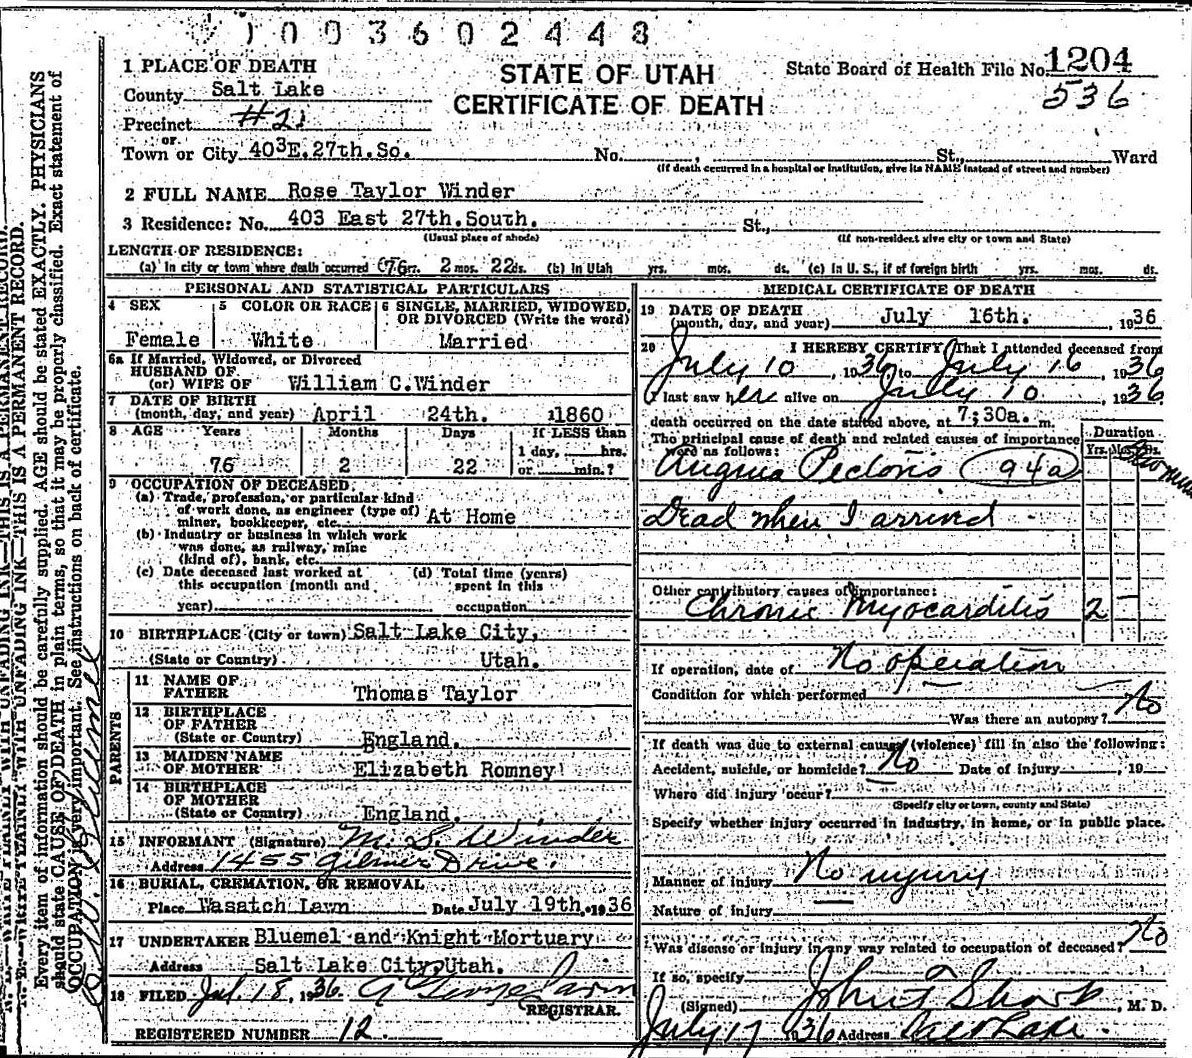 1003602448
1 PLACE OF DEATH
County Salt Lake
Precinct #21
or
Town or City 403E.27th.So. No. , St., Ward
(If death occurred in a hospital or institution, give its NAME instead of street and number)
STATE OF UTAH
CERTIFICATE OF DEATH
State Board of Health File No. 1204
536
2 FULL NAME Rose Taylor Winder
3 Residence: No. 403 East 27th.South. St.,
(Usual place of abode) (If non-resident give city or town and State)
LENGTH OF RESIDENCE:
(a) In city or town where death occurred 76 yrs. 2 mos. 22 ds. (b) In Utah yrs. mos. ds. (c) In U. S., if of foreign birth yrs. mos. ds.
PERSONAL AND STATISTICAL PARTICULARS
4 SEX
Female
5 COLOR OR RACE
White
6 SINGLE, MARRIED, WIDOWED,
OR DIVORCED (Write the word)
Married
6a If Married, Widowed, or Divorced
HUSBAND OF
(or) WIFE OF William C.Winder
7 DATE OF BIRTH
(month, day, and year) April 24th. 1860
8 AGE Years Months Days If LESS than
1 day, hrs.
76 2 22 or min.?
9 OCCUPATION OF DECEASED:
(a) Trade, profession, or particular kind
of work done, as engineer (type of)
miner, bookkeeper, etc. At Home
(b) Industry or business in which work
was done, as railway, mine
(kind of), bank, etc.
(c) Date deceased last worked at
this occupation (month and
year)
(d) Total time (years)
spent in this
occupation
10 BIRTHPLACE (City or town) Salt Lake City,
(State or Country) Utah.
PARENTS
11 NAME OF
FATHER Thomas Taylor
12 BIRTHPLACE
OF FATHER
(State or Country) England.
13 MAIDEN NAME
OF MOTHER Elizabeth Romney
14 BIRTHPLACE
OF MOTHER
(State or Country) England.
15 INFORMANT (Signature) M. S. Winder
Address 1455 Gilmer Drive.
16 BURIAL, CREMATION, OR REMOVAL
Place Wasatch Lawn Date July 19th, 1936
17 UNDERTAKER Bluemel and Knight Mortuary
Address Salt Lake City, Utah.
18 FILED Jul 18, 1936.
REGISTRAR.
REGISTERED NUMBER 12.
MEDICAL CERTIFICATE OF DEATH
19 DATE OF DEATH
(month, day, and year) July 16th. , 1936
20 I HEREBY CERTIFY, That I attended deceased from
July 10, 1936, to July 16, 1936
I last saw her alive on July 10, 1936
death occurred on the date stated above, at 7;30a. m.
The principal cause of death and related causes of importance
were as follows:
Duration
Yrs. Mos. Ds.
Angina Pectoris 94a
Dead when I arrived
Other contributory causes of importance:
Chronic Myocarditis 2
If operation, date of No operation
Condition for which performed
Was there an autopsy? No
If death was due to external causes (violence) fill in also the following:
Accident, suicide, or homicide? No Date of injury , 19
Where did injury occur?
(Specify city or town, county and State)
Specify whether injury occurred in industry, in home, or in public place.
Manner of injury No injury
Nature of injury
Was disease or injury in any way related to occupation of deceased? No
If so, specify
(Signed) John F Sharp, M. D.
July 17 1936 Address Salt Lake.
N. B.—WRITE PLAINLY WITH UNFADING INK—THIS IS A PERMANENT RECORD.
Every item of information should be carefully supplied. AGE should be stated EXACTLY. PHYSICIANS
should state CAUSE OF DEATH in plain terms, so that it may be properly classified. Exact statement of
OCCUPATION is very important. See instructions on back of certificate.